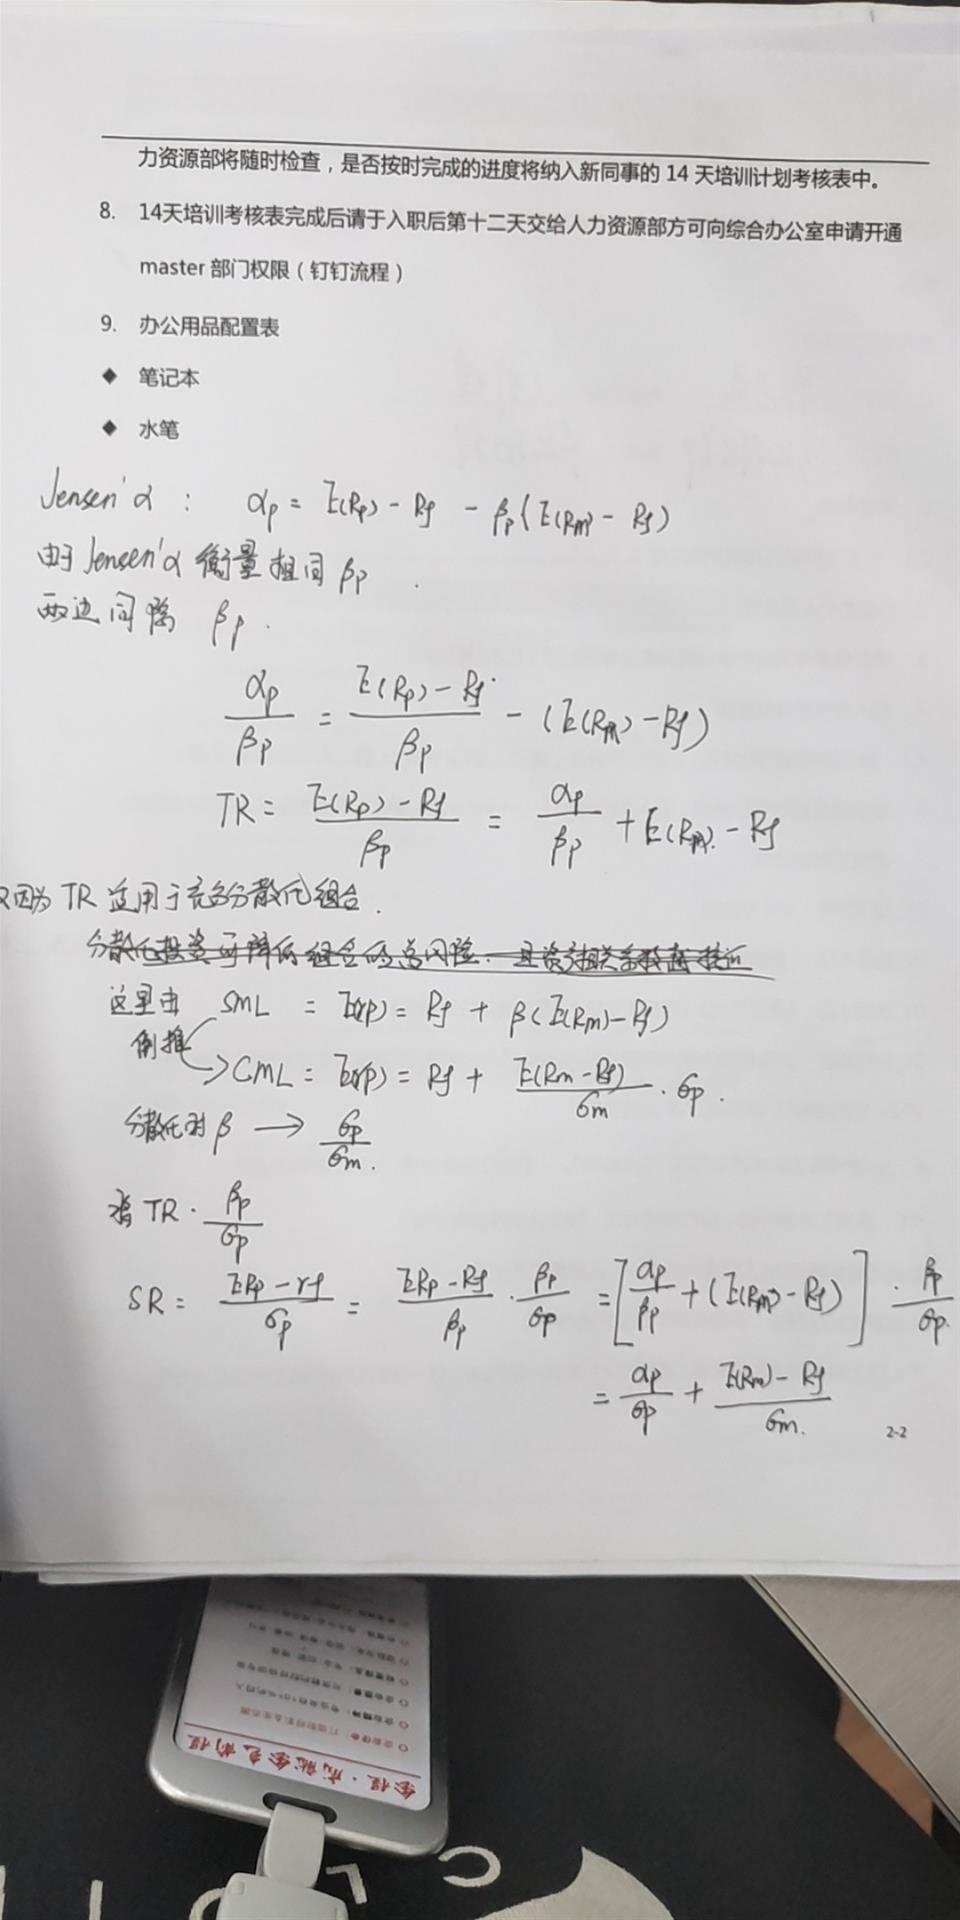 力资源部将随时检查，是否按时完成的进度将纳入新同事的 14 天培训计划考核表中。
8. 14天培训考核表完成后请于入职后第十二天交给人力资源部方可向综合办公室申请开通
master 部门权限（钉钉流程）
9. 办公用品配置表
◆ 笔记本
◆ 水笔
Jensen'α : αp = E(Rp) - Rf - βp(E(Rm) - Rf)
由于Jensen'α 衡量相同 βp
两边同除 βp.
αp/βp = (E(Rp) - Rf)/βp - (E(Rm) - Rf)
TR = (E(Rp) - Rf)/βp = αp/βp + E(Rm) - Rf
又因为 TR 适用于充分分散化组合.
分散化投资可降低组合的总风险. 且资产相关系数越接近
这里由 SML = E(rp) = Rf + β(E(Rm) - Rf)
倒推
CML = E(rp) = Rf + E(Rm - Rf)/σm · σp.
分散化时 β → σp/σm.
将 TR · βp/σp
SR = (ERp - rf)/σp = (ERp - Rf)/βp · βp/σp = [αp/βp + (E(Rm) - Rf)] · βp/σp.
= αp/σp + (E(Rm) - Rf)/σm.
2-2
金程·成就金色前程